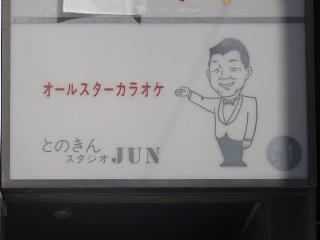 オールスターカラオケ
とのきん
スタジオ JUN